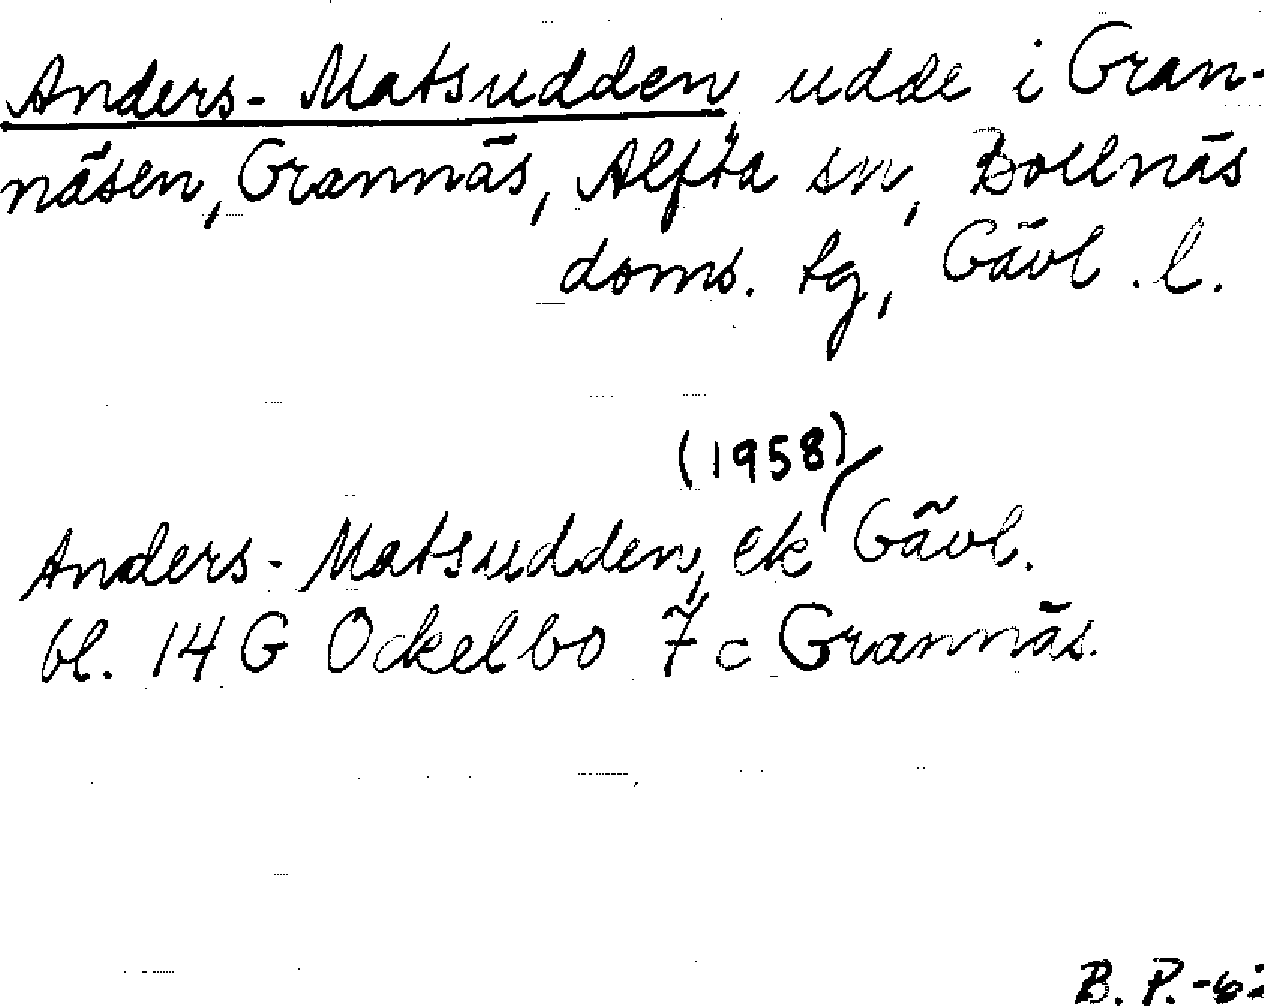 Anders-Matsudden, udde i Gran-
näsen, Grannäs, Alfta sn, Bollnäs
doms. tg, Gävl. l.
(1958)
Anders-Matsudden, ek Gävl.
bl. 14 G Ockelbo 7 c Grannäs.
B. P. -62